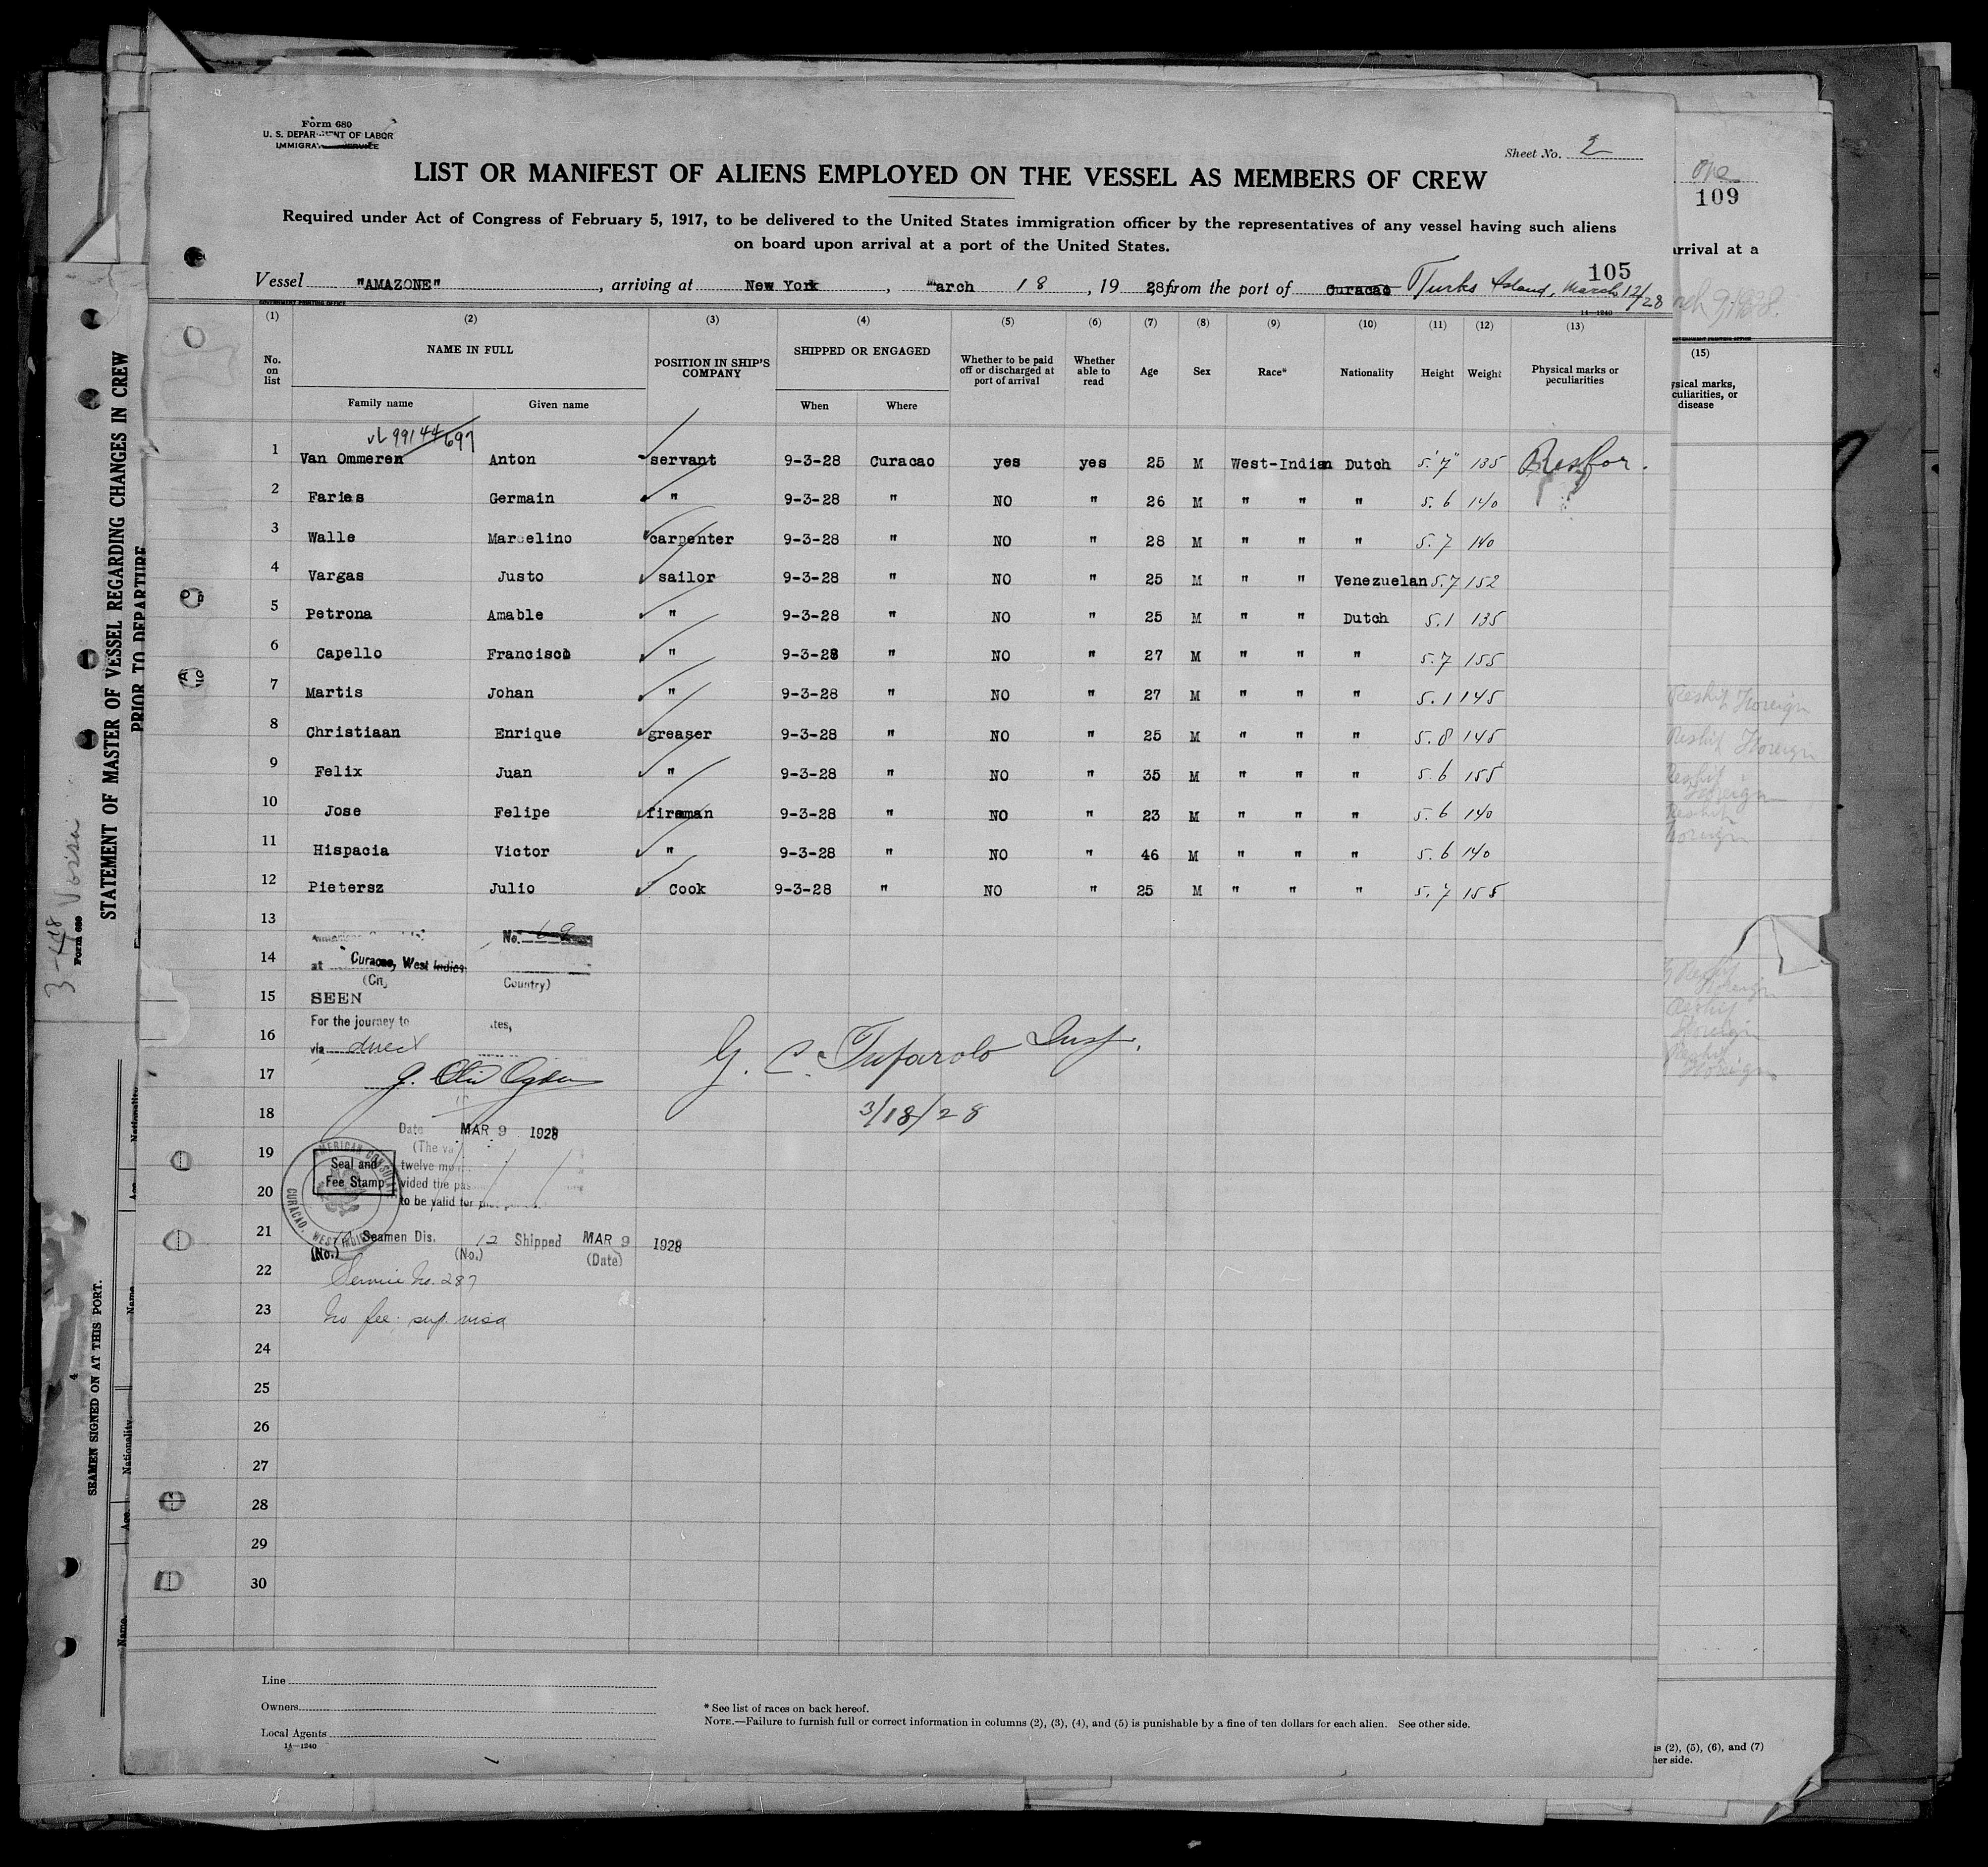 Form 680
U. S. DEPARTMENT OF LABOR
IMMIGRATION SERVICE
Sheet No. 2
LIST OR MANIFEST OF ALIENS EMPLOYED ON THE VESSEL AS MEMBERS OF CREW
Required under Act of Congress of February 5, 1917, to be delivered to the United States immigration officer by the representatives of any vessel having such aliens
on board upon arrival at a port of the United States.
105
Vessel "AMAZONE", arriving at New York, March 18, 1928, from the port of Curacao Turks Island, March 12/28
GOVERNMENT PRINTING OFFICE
14—1240
(1) (2) (3) (4) (5) (6) (7) (8) (9) (10) (11) (12) (13)
No. on list NAME IN FULL POSITION IN SHIP'S COMPANY SHIPPED OR ENGAGED Whether to be paid off or discharged at port of arrival Whether able to read Age Sex Race* Nationality Height Weight Physical marks or peculiarities
Family name Given name When Where
99144/697
1 Van Ommeren Anton servant 9-3-28 Curacao yes yes 25 M West-Indian Dutch 5'7" 135
2 Faries Germain " 9-3-28 " NO " 26 M " " " 5.6 140
3 Walle Marcelino carpenter 9-3-28 " NO " 28 M " " " 5.7 140
4 Vargas Justo sailor 9-3-28 " NO " 25 M " " Venezuelan 5.7 152
5 Petrona Amable " 9-3-28 " NO " 25 M " " Dutch 5.1 135
6 Capello Francisco " 9-3-28 " NO " 27 M " " " 5.7 155
7 Martis Johan " 9-3-28 " NO " 27 M " " " 5.1 145
8 Christiaan Enrique greaser 9-3-28 " NO " 25 M " " " 5.8 145
9 Felix Juan " 9-3-28 " NO " 35 M " " " 5.6 155
10 Jose Felipe fireman 9-3-28 " NO " 23 M " " " 5.6 140
11 Hispacia Victor " 9-3-28 " NO " 46 M " " " 5.6 140
12 Pietersz Julio Cook 9-3-28 " NO " 25 M " " " 5.7 155
13
No.
14
at Curacao, West Indies
(City) Country)
15
SEEN
For the journey to
16
via direct
G. C. Tufarolo Insp.
17
18
3/18/28
Date MAR 9 1928
19
Seal and
Fee Stamp
twelve
vided the
to be valid for
AMERICAN CONSULATE
CURACAO, WEST INDIES
20
21
12 Seamen Dis. 12 Shipped MAR 9 1928
(No.) (No.) (Date)
22
Service No. 287
23
No fee. sup. visa
24
25
26
27
28
29
30
Line
Owners
Local Agents
14—1240
* See list of races on back hereof.
NOTE.—Failure to furnish full or correct information in columns (2), (3), (4), and (5) is punishable by a fine of ten dollars for each alien. See other side.
STATEMENT OF MASTER OF VESSEL REGARDING CHANGES IN CREW
PRIOR TO DEPARTURE
Form 680
SEAMEN SIGNED ON AT THIS PORT.
4
Name
Age
Nationality
Name
Age
Nationality
One
109
arrival at a
(15)
ysical marks,
culiarities, or
disease
Reship Foreign
Reship Foreign
Reship
Foreign
Reship
Foreign
Reship
Foreign
Reship
Foreign
Reship
Foreign
s (2), (5), (6), and (7)
her side.